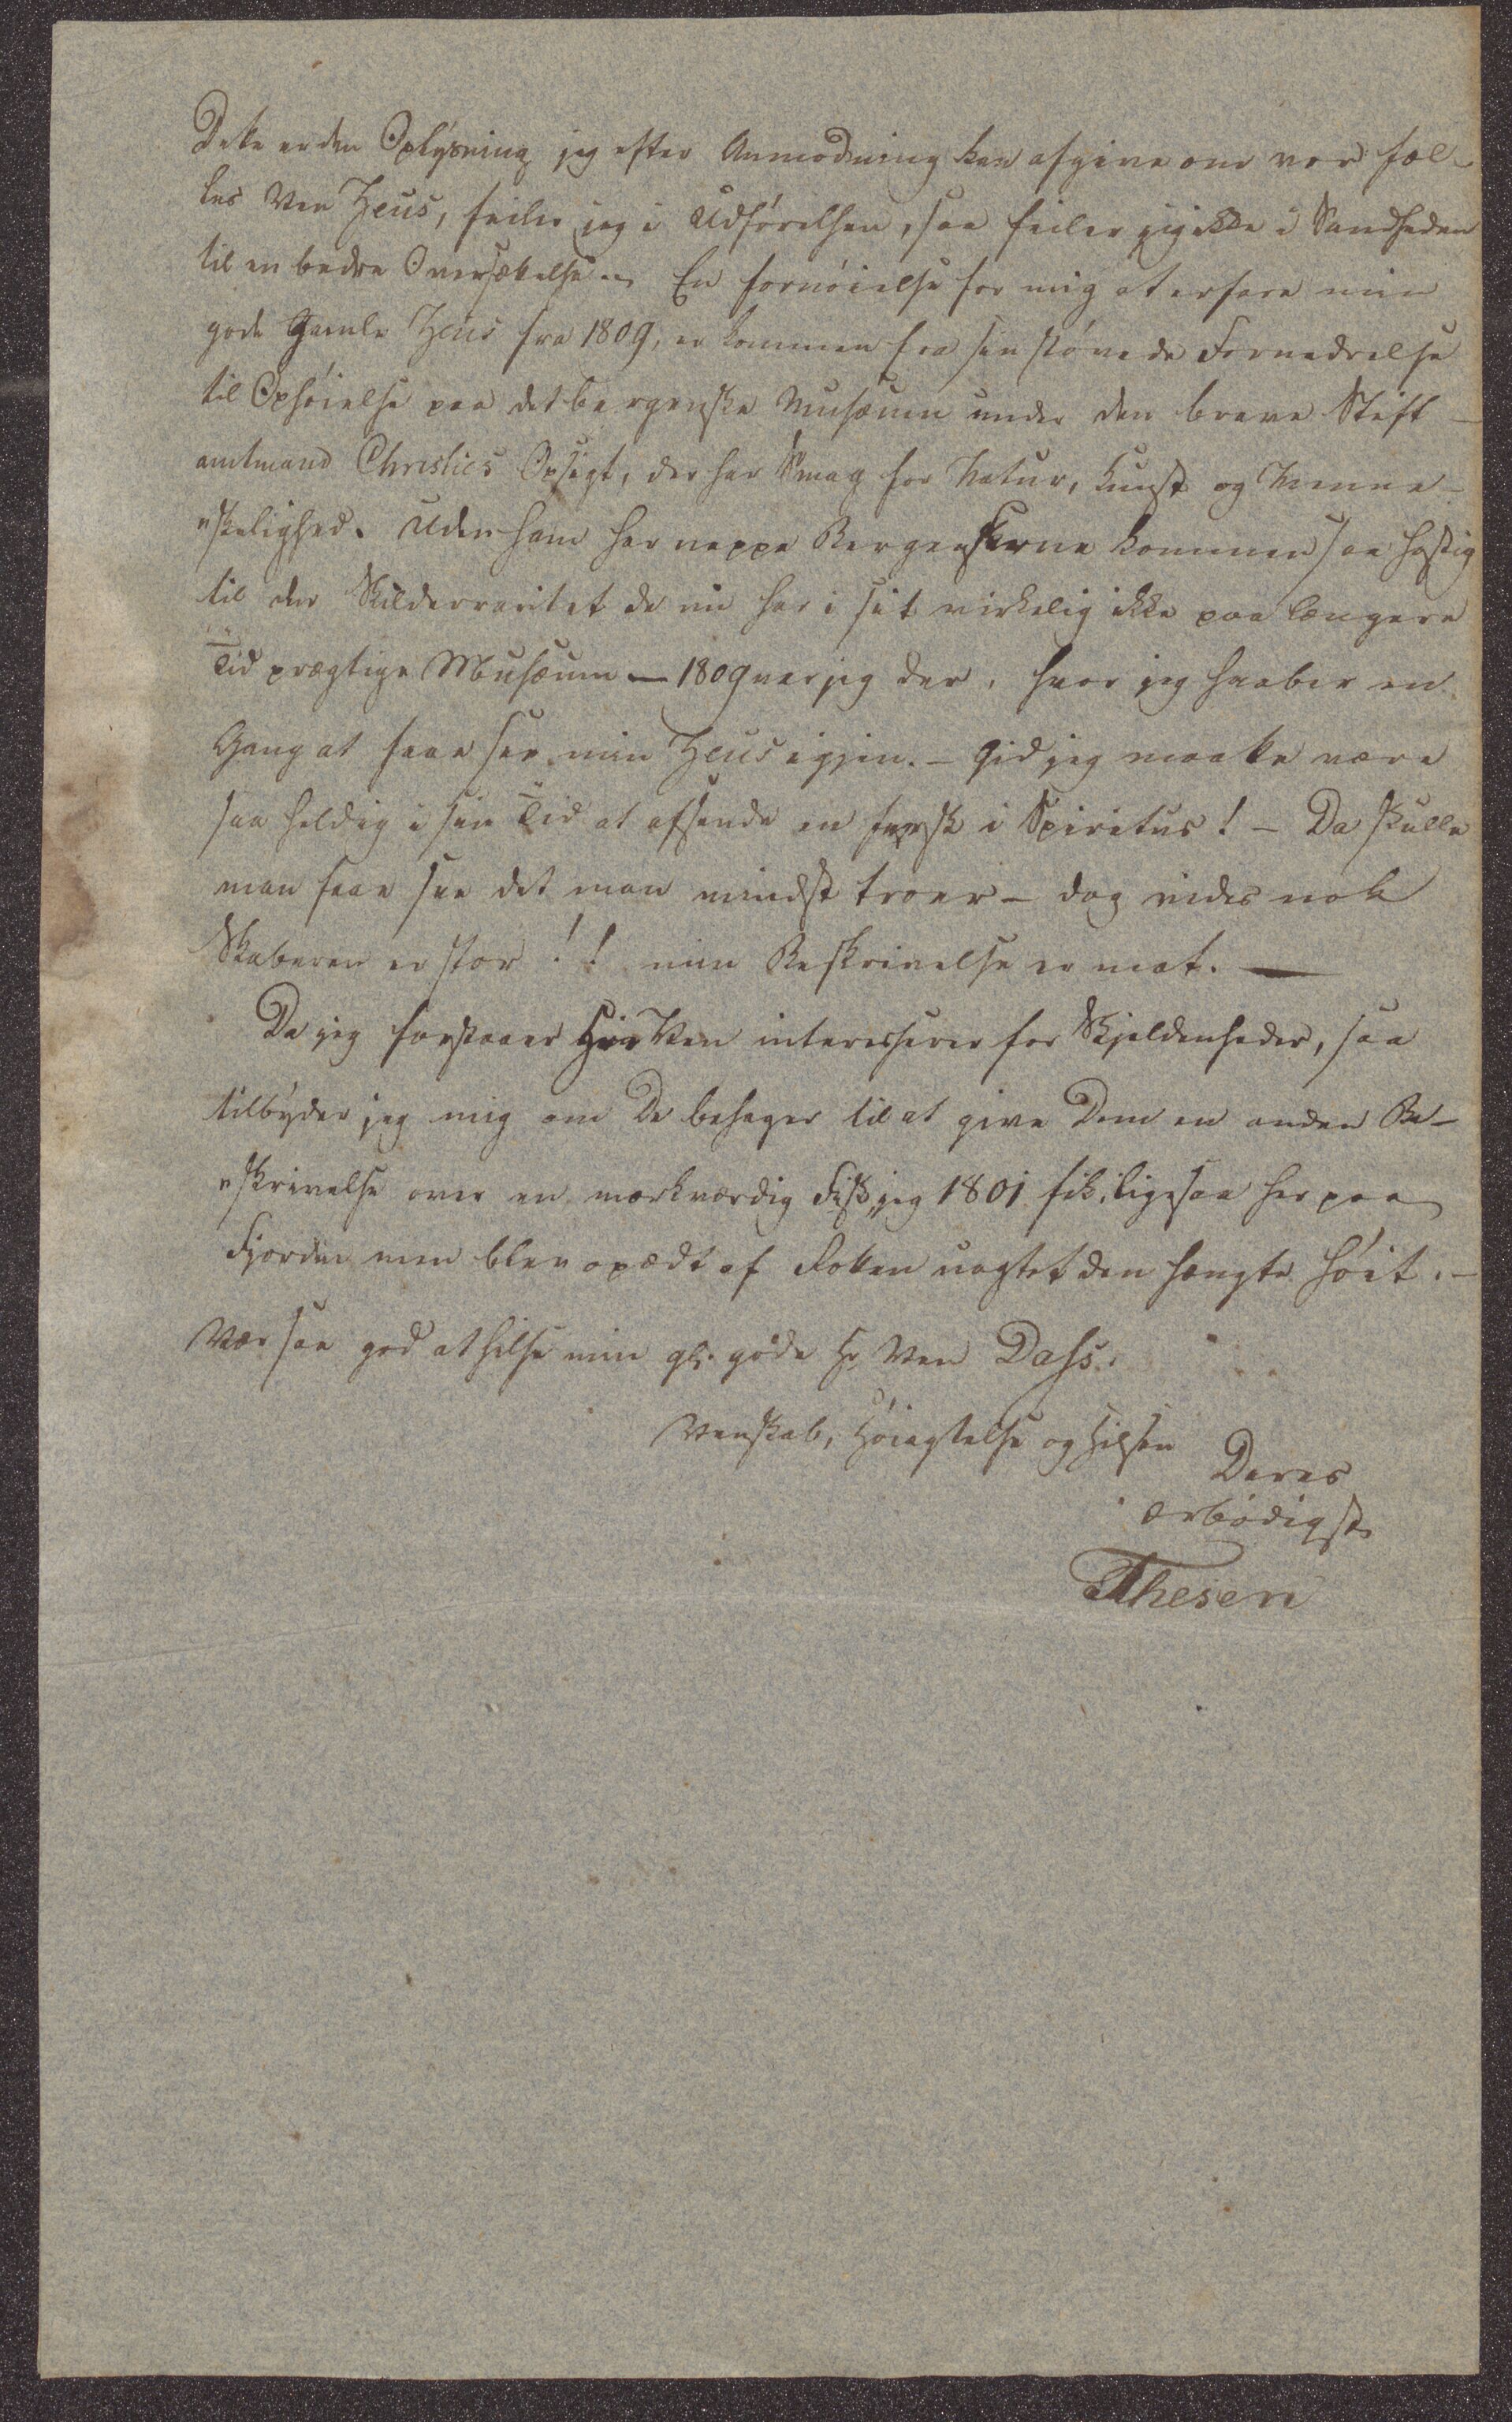 Dette er den Oplysning jeg efter Anmodning kan afgive om vor fæl-
les Ven Zeus, feiler jeg i Udførelsen, saa feiler jeg ikke i Sandheden
til en bedre Oversættelse. En fornøielse for mig at erfare min
gode Gamle Zeus fra 1809, er kommen fra sin støvede Fornedrelse
til Ophøielse paa det bergenske Musæum under den brave Stift-
amtmand Christies Opsigt, der har Smag for Natur, Kunst og Menne-
"skelighed. Uden ham har neppe Bergenserne kommen saa hastig
til den Skilderraritet de nu har i sit virkelig ikke paa længere
Tid prægtige Musæum — 1809 var jeg der, hvor jeg haaber en
Gang at faae see min Zeus igjen. – Gid jeg maatte være
saa heldig i sin Tid at afsende en fersk i Spiritus! – Da skulle
man faae see det man mindst troer – dog vides nok
Skaberen er stor!! min Beskrivelse er mat. —
Da jeg forstaaer Hr Ven interesserer for Skjeldenheder, saa
tilbyder jeg mig om De behager til at give Dem en anden Be-
"skrivelse over en mærkværdig Fisk, jeg 1801 fik, ligesaa her paa
Fjorden men blev opædt af Rotten uagtet den hængte høit. –
Vær saa god at hilse min gl. gode Hr Ven Dass.
Venskab, Høiagtelse og Hilsen
Deres
ærbødigst
Thesen